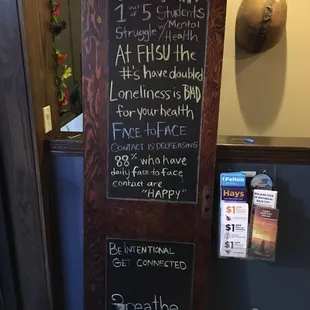 1 out of 5 Students
Struggle w/Mental
Health
At FHSU the
#'s have doubled
Loneliness is BAD
for your health
FACE to FACE
CONTACT IS DECREASING
88% who have
daily face to face
contact are
"HAPPY"
BE INTENTIONAL
GET CONNECTED
Breathe
Hays
$1
$1
$1